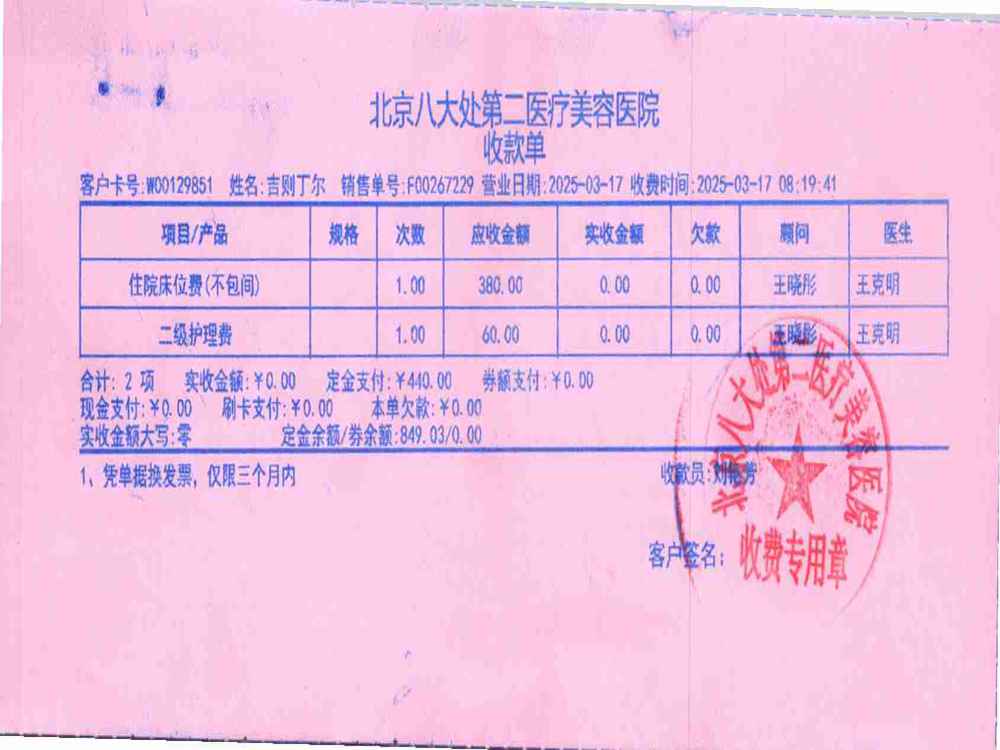 北京八大处第二医疗美容医院
收款单
客户卡号:W00129851 姓名:吉则丁尔 销售单号:F00267229 营业日期:2025-03-17 收费时间:2025-03-17 08:19:41
项目/产品 规格 次数 应收金额 实收金额 欠款 顾问 医生
住院床位费(不包间) 1.00 380.00 0.00 0.00 王晓彤 王克明
二级护理费 1.00 60.00 0.00 0.00 王晓彤 王克明
合计: 2 项 实收金额:¥0.00 定金支付:¥440.00 券额支付:¥0.00
现金支付:¥0.00 刷卡支付:¥0.00 本单欠款:¥0.00
实收金额大写:零 定金余额/券余额:849.03/0.00
1、凭单据换发票，仅限三个月内
收款员:刘艳芳
客户签名:
北京八大处第二医疗美容医院
收费专用章